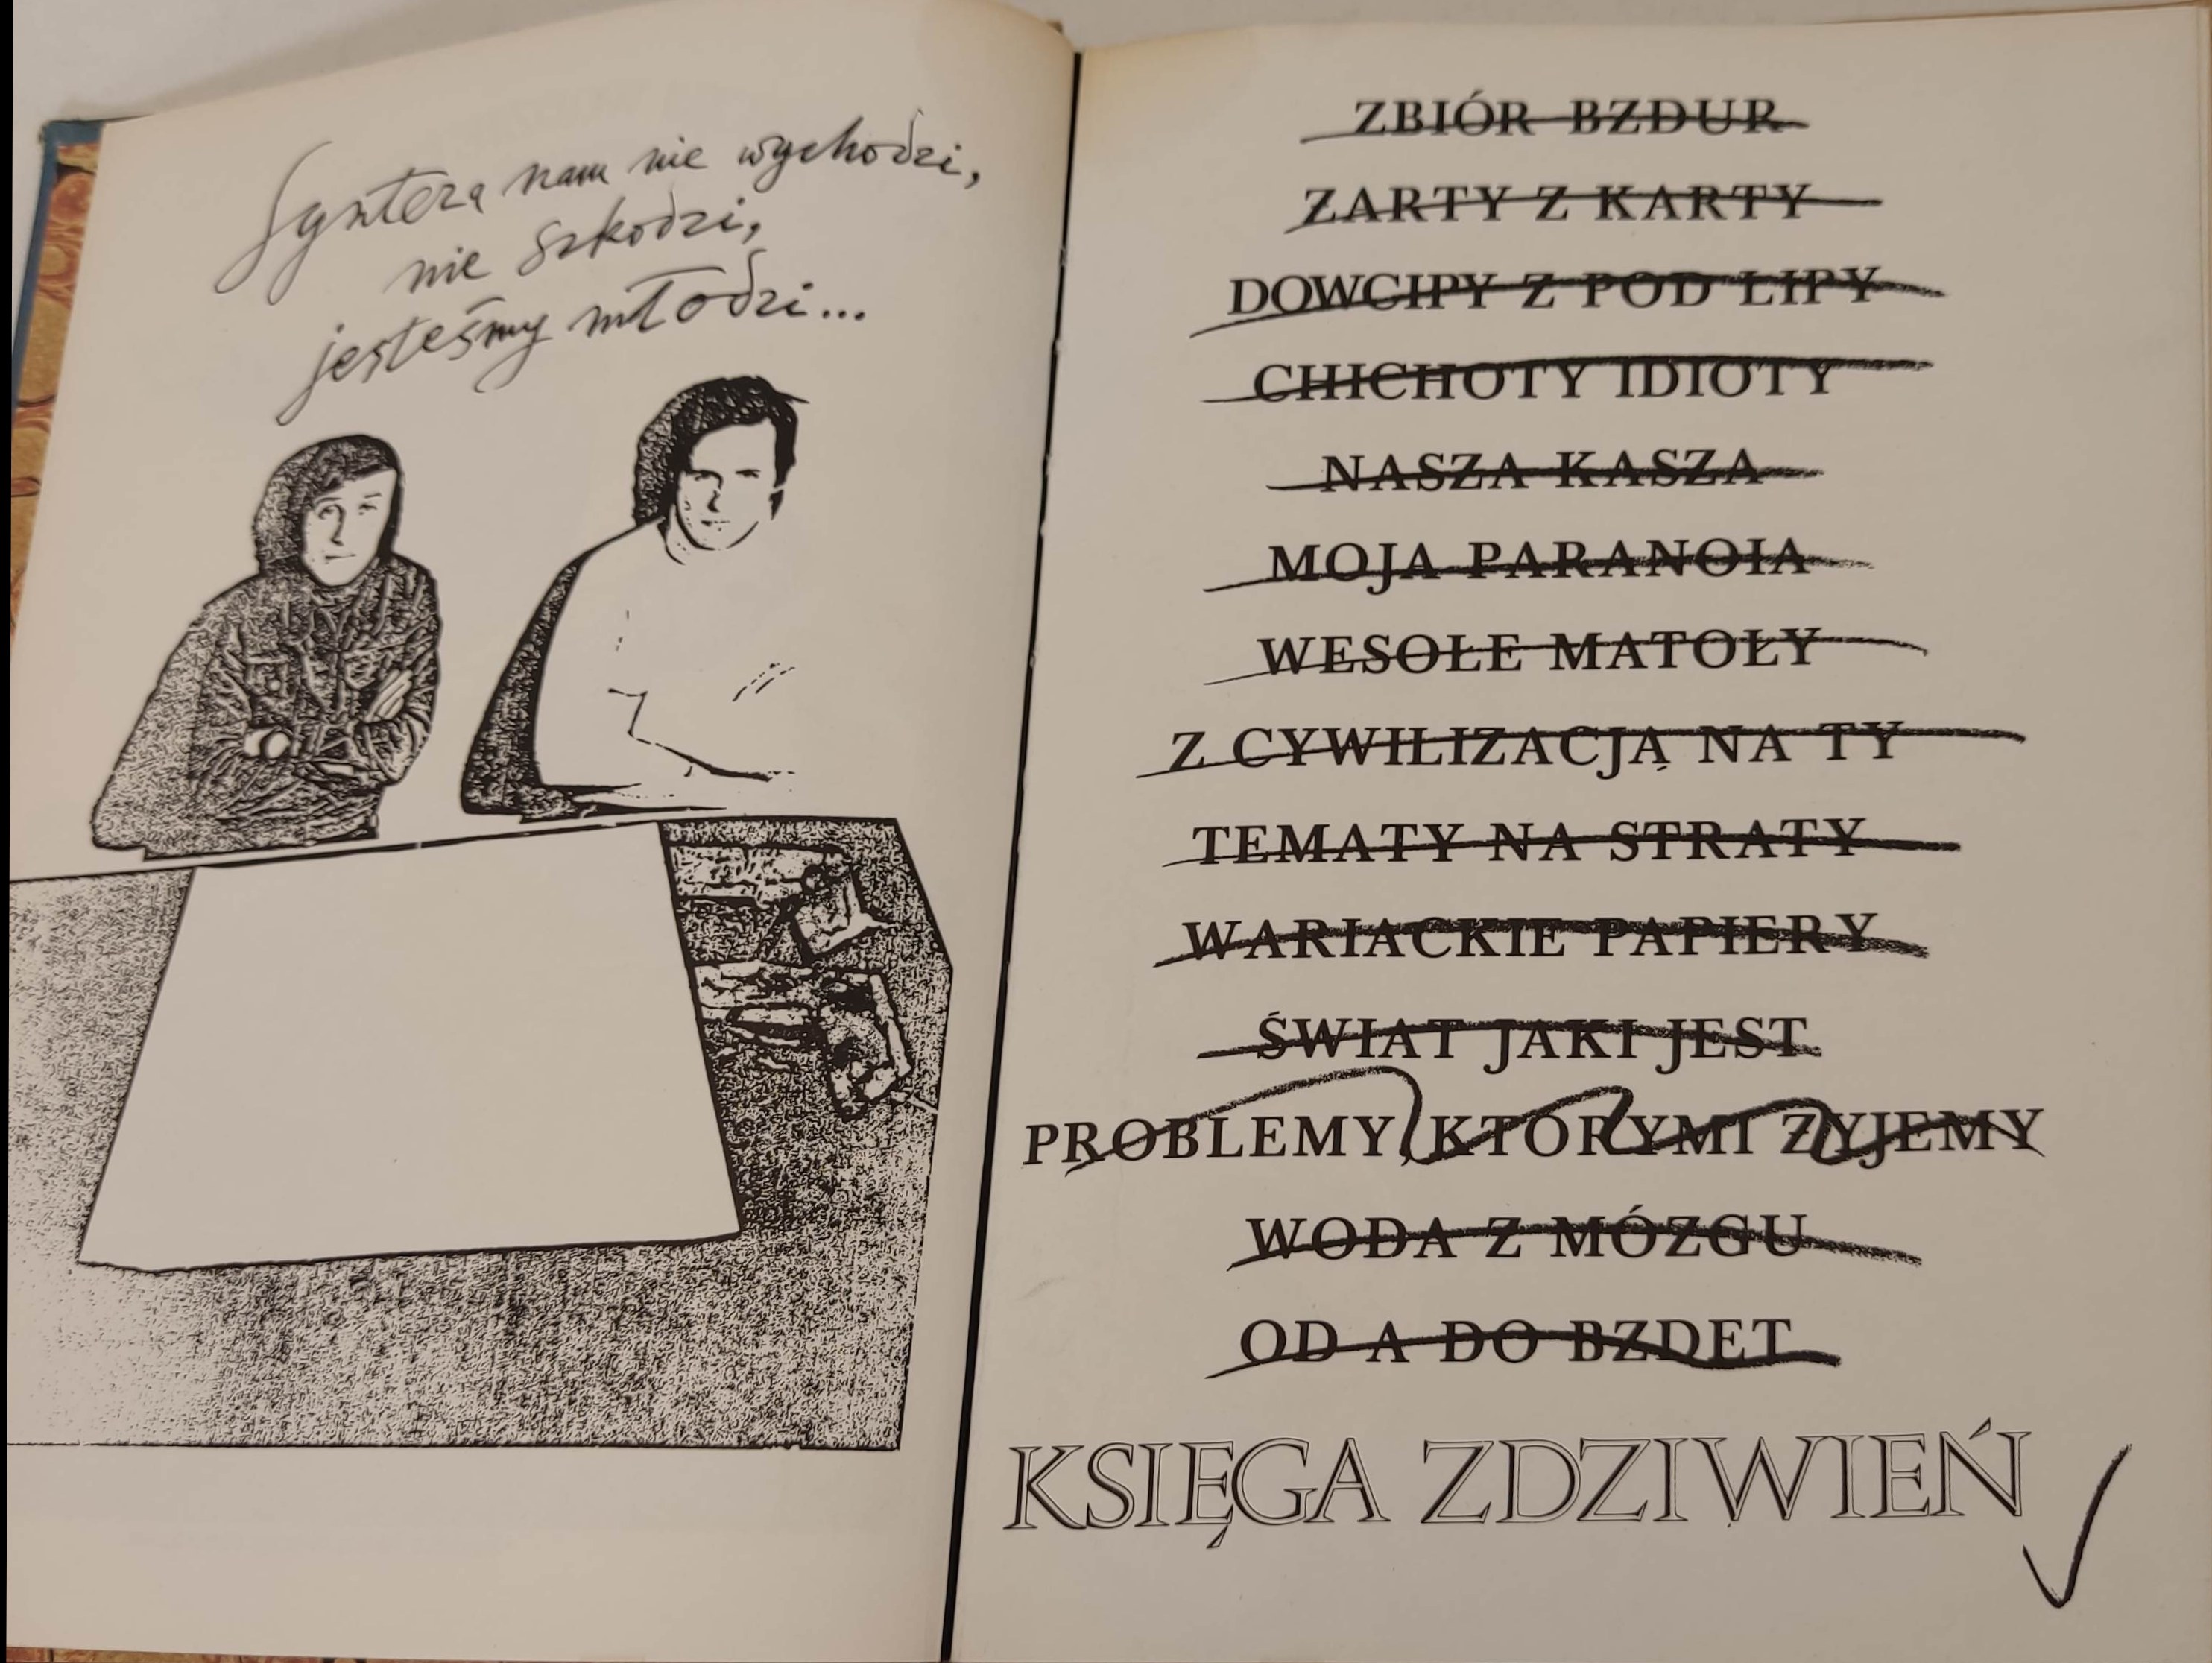 Synteza nam nie wychodzi,
nie szkodzi,
jesteśmy młodzi...
ZBIÓR BZDUR
ŻARTY Z KARTY
DOWCIPY Z POD LIPY
CHICHOTY IDIOTY
NASZA KASZA
MOJA PARANOIA
WESOŁE MATOŁY
Z CYWILIZACJĄ NA TY
TEMATY NA STRATY
WARIACKIE PAPIERY
ŚWIAT JAKI JEST
PROBLEMY, KTÓRYMI ŻYJEMY
WODA Z MÓZGU
OD A DO BZDET
KSIĘGA ZDZIWIEŃ